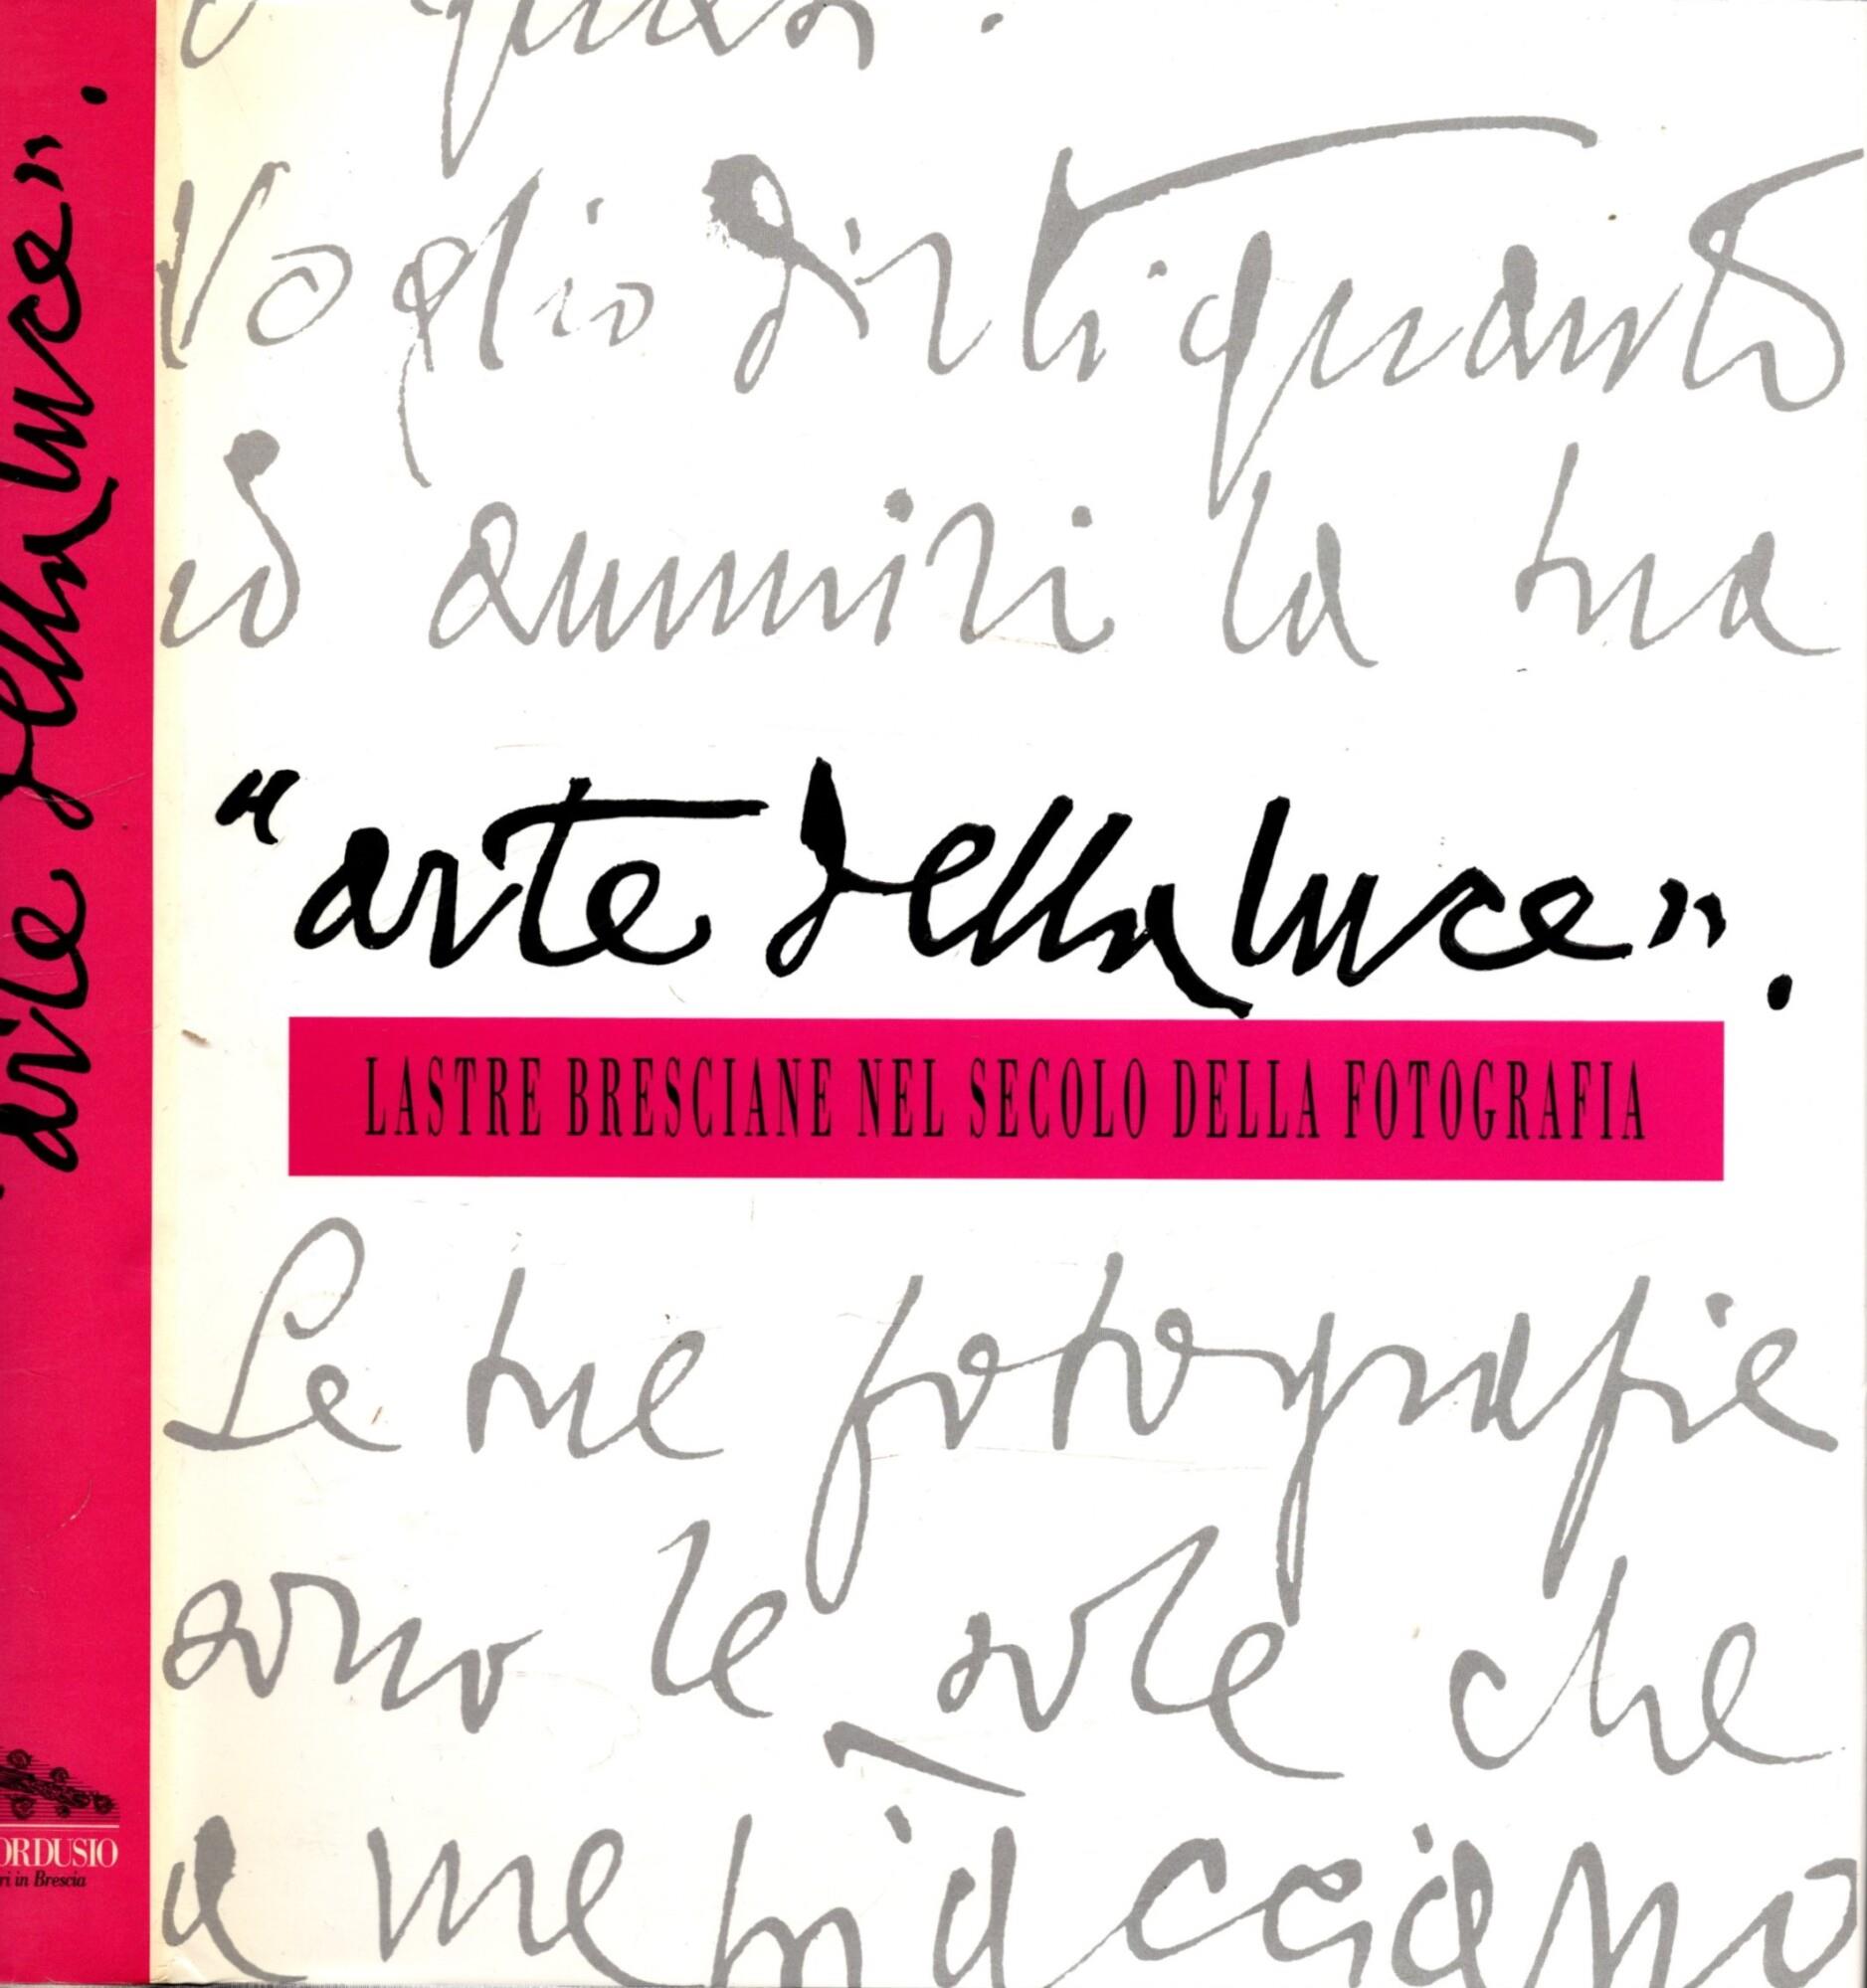 o quasi.
Voglio dirti quanto
io ammiri la tua
"arte della luce".
LASTRE BRESCIANE NEL SECOLO DELLA FOTOGRAFIA
Le tue fotografie
sono le sole che
a me piacciano
"arte della luce".
ORDUSIO
ri in Brescia